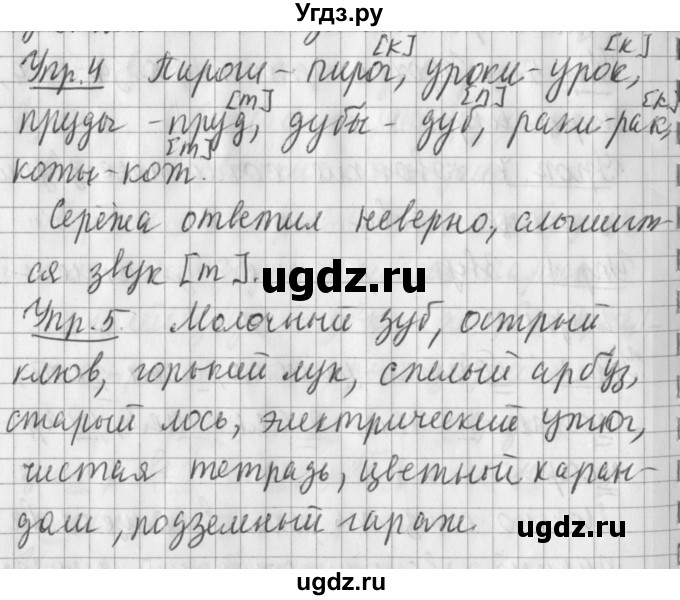 Угдз.ру
[к] [к]
Упр.4 Пироги - пирог, уроки - урок,
[т] [п] [к]
пруды - пруд, дубы - дуб, раки - рак,
[т]
коты - кот.
Серёжа ответил неверно, слышит-
ся звук [т].
ugdz.ru
Упр.5. Молочный зуб, острый
клюв, горький лук, спелый арбуз,
старый лось, электрический утюг,
чистая тетрадь, цветной каран-
даш, подземный гараж.
ugdz.ru
ugdz.ru